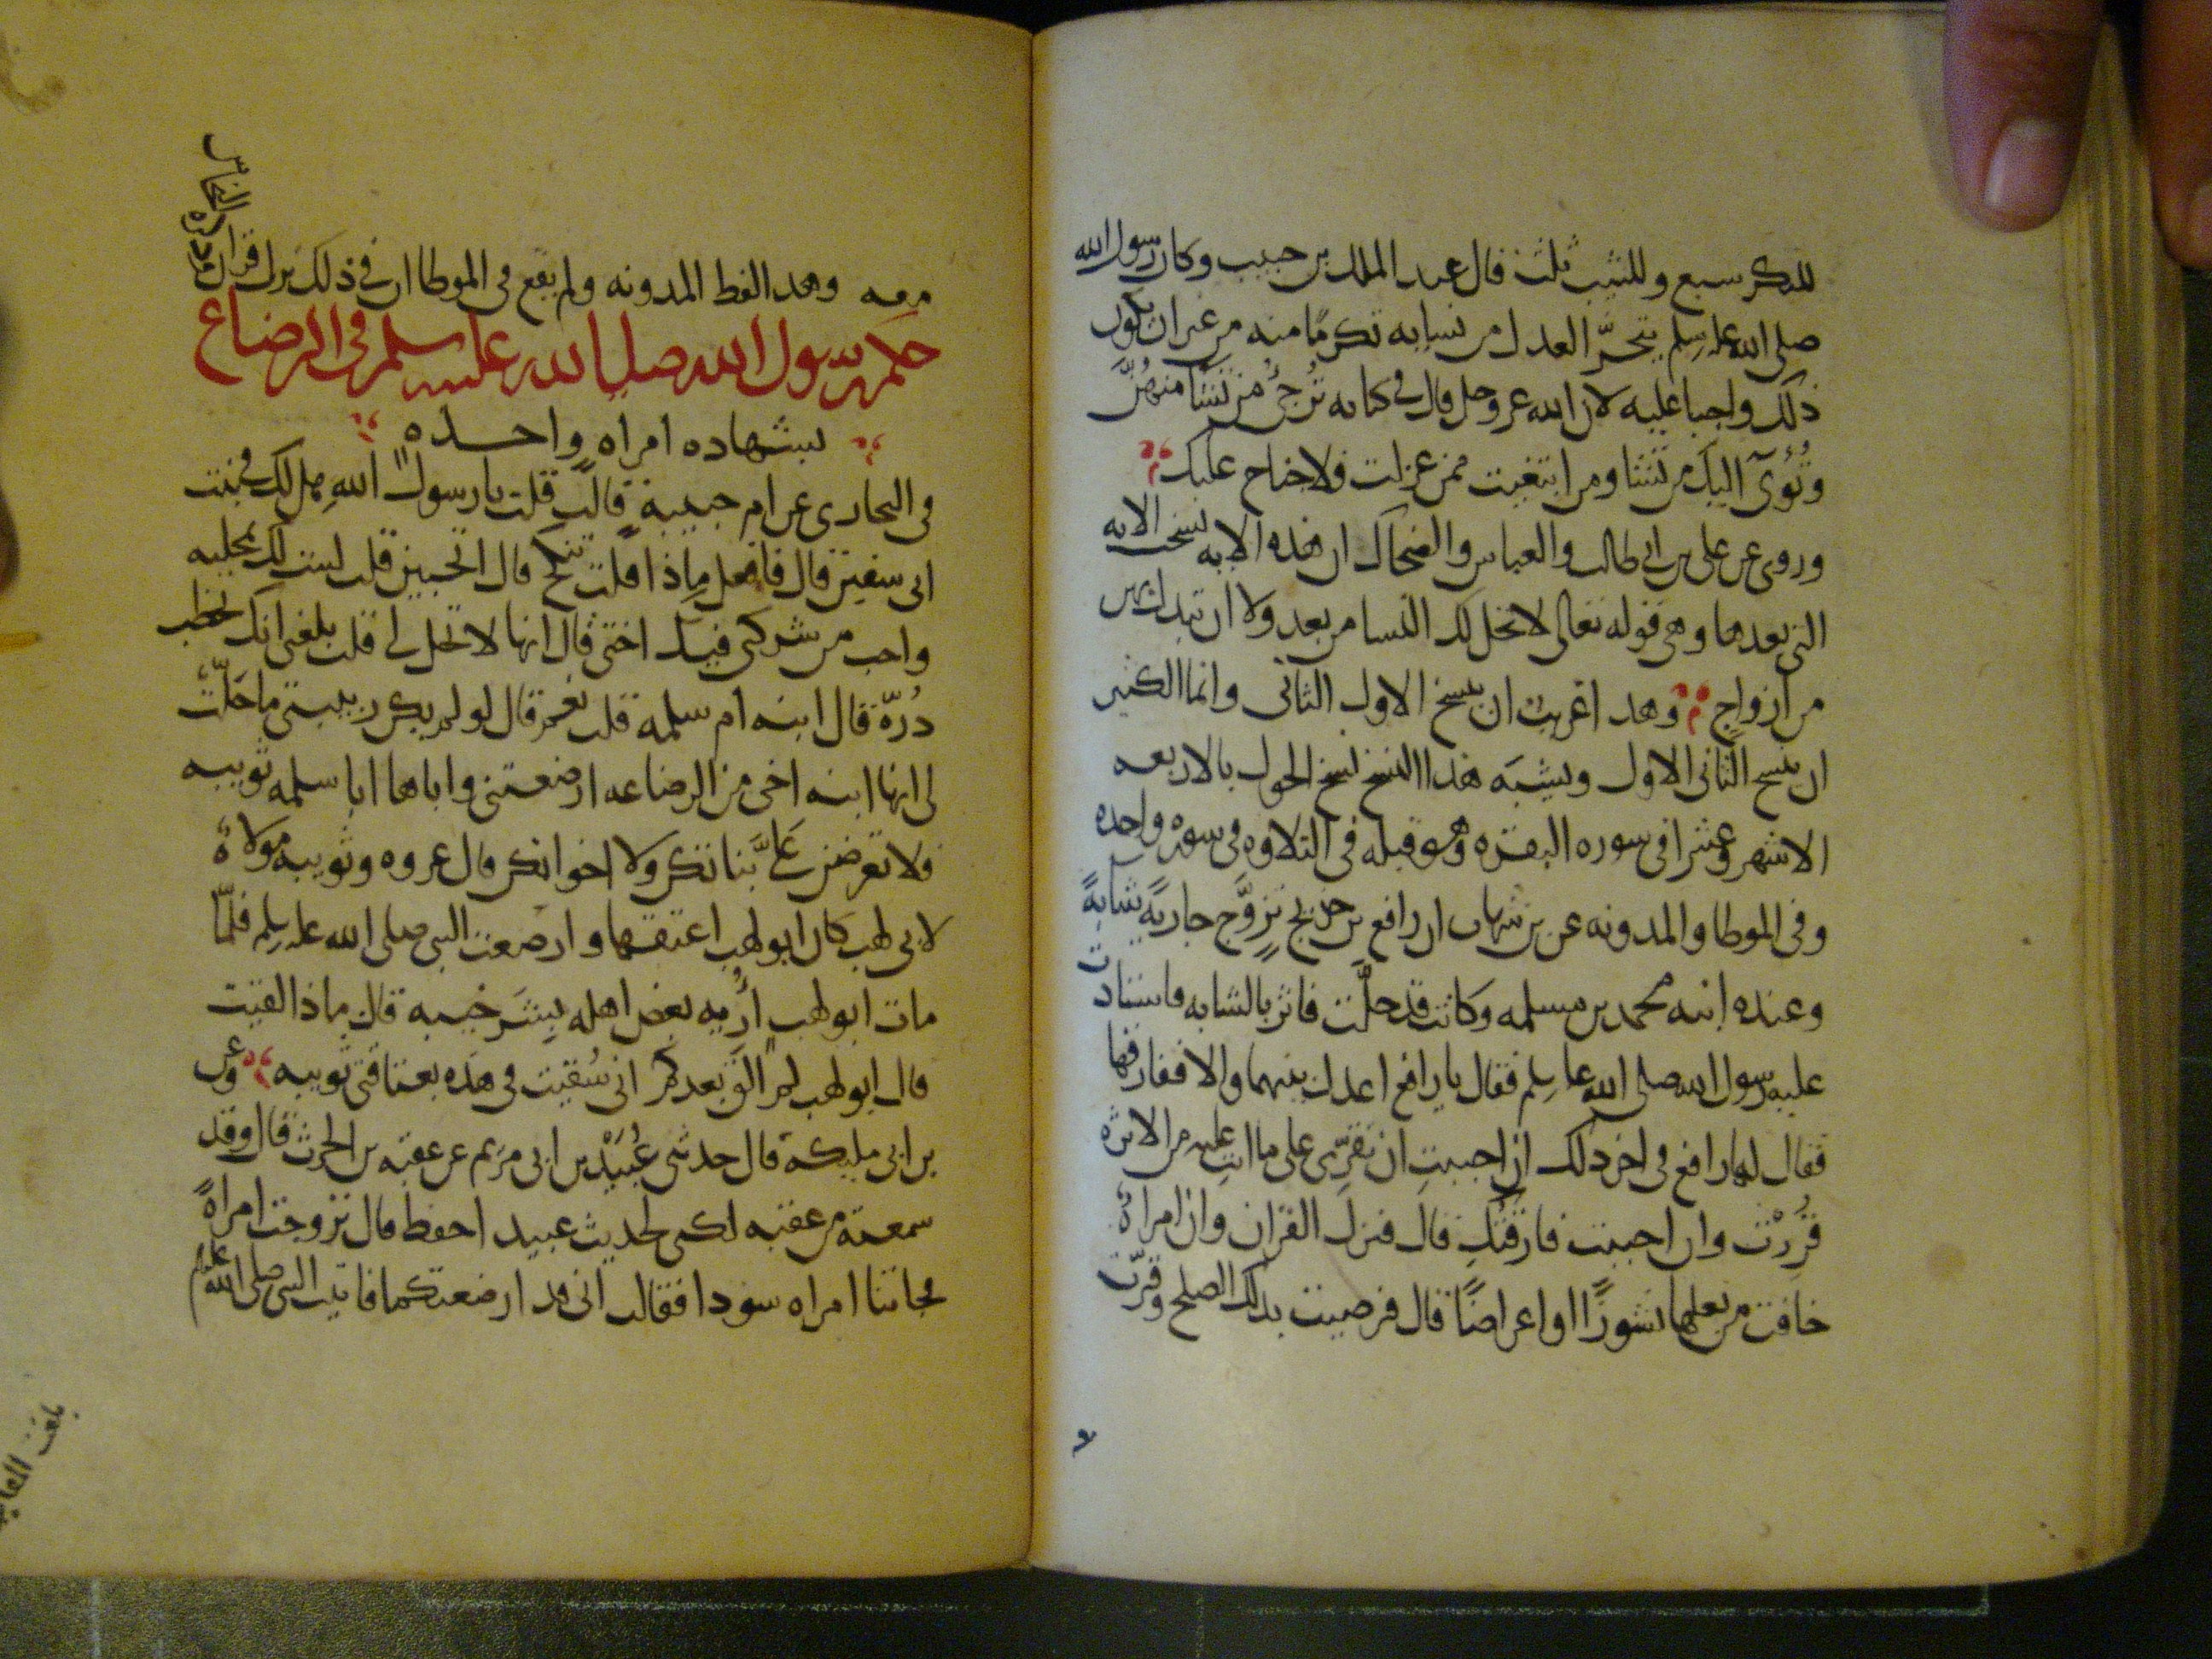 للبكر سبع وللثيب ثلث قال عبد الملك بن حبيب وكان رسول الله
صلى الله عليه وسلم يتحرّ العدل من نسايه تكرمًا منه من غير ان يكون
ذلك واجبا عليه لان الله عز وجل قال في كتابه تُرجئ من تشا منهنَّ
وتُؤوى اليك من تشا ومن ابتغيت ممن عزلت فلا جناح عليك
وروى عن على بن ابى طالب والعباس والضحاك ان هذه الايه نسخت الايه
التى بعدها وهى قوله تعالى لا تحل لك النسا من بعد ولا ان تبدل بهن
من ازواج وهذا غريب ان ينسخ الاول الثانى وانما الكثير
ان ينسخ الثانى الاول ويشبه هذا النسخ نسخ الحول بالاربعه
الاشهر وعشرا فى سوره البقره وهو قبله فى التلاوه فى سوره واحده
وفى الموطا والمدونه عن بن شهاب ان رافع بن خديج تزوَّج جاريةً شابةً
وعنده ابنه محمد بن مسلمه وكانت قد حلَّت فاثر بالشابه فاستاذت
عليه رسول الله صلى الله عليه وسلم فقال يا رافع اعدل بينهما والا ففارقها
فقال لها رافع فى اخر ذلك ان احببتِ ان تقرِّى على ما انتِ عليه من الاثره
قُررْت وان احببت فارقتُكِ قال فنزل القران وان امراةٌ
خافت من بعلها نشوزًا او اعراضًا قال فرضيت بذلك الصلح وقرّت
معه وهذا لفظ المدونه ولم يقع فى الموطا ان فى ذلك نزل قران
حكم رسول الله صلى الله عليه وسلم فى الرضاع
بشهاده امراه واحده
فى البخارى عن ام حبيبة قالت قلت يا رسول الله هل لك فى بنت
ابى سفين قال فافعل ماذا قلت تنكح قال اتحبين قلت لست لك بمخليه
واحب من شركنى فيك اختى قال انها لا تحل لى قلت بلغنى انك تخطب
دُرّة قال ابنه ام سلمه قلت نعم قال لو لم يكن ربيبتى ما حَلّت
لى انها ابنه اخى من الرضاعه ارضعتنى واباها ابا سلمه ثويبه
فلا تعرضن عَلىَّ بناتكن ولا اخواتكن قال عروه وثويبه مولاةٌ
لابى لهب كان ابو لهب اعتقها وارضعت النبى صلى الله عليه وسلم فلمّا
مات ابو لهب اُريه بعض اهله بِشَر خيبه قال ماذا لقيت
قال ابو لهب لم الق بعدكم انى سُقيت فى هذه بعتاقتى ثويبه وعن
بن ابى مليكة قال حدثنى عُبيد بن ابى مريم عن عقبه بن الحرث قال وقد
سمعته من عقبه لكنى لحديث عبيد احفظ قال تزوجت امراةً
فجاتنا امراه سودا فقالت انى قد ارضعتكما فاتيت النبى صلى الله عليه وسلم